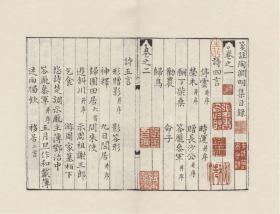 箋註陶淵明集目錄
卷之一
詩四言
停雲并序
時運并序
榮木并序
贈長沙公并序
酬丁柴桑
答龐參軍并序
勸農
命子
歸鳥
卷之二
詩五言
形贈影并序
影答形
神釋
九日閒居并序
歸園田居六首
問來使
遊斜川并序
示周祖謝三郎
乞食
諸人同遊周家墓栢下
怨詩楚調示龐主簿鄧治中
答龐參軍并序
五月旦作和戴主簿
連雨獨飲
移居二首